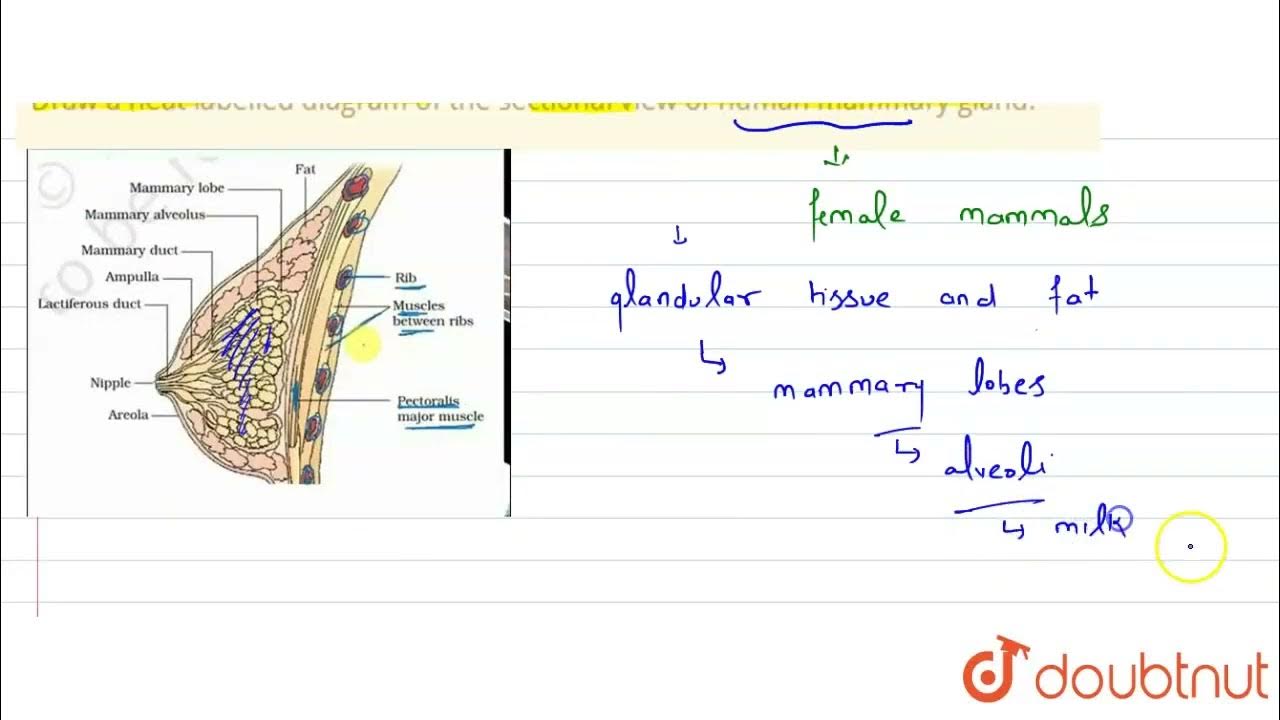 Draw a neat labelled diagram of the sectional view of human mammary gland.
Fat
Mammary lobe
Mammary alveolus
Mammary duct
Ampulla
Lactiferous duct
Nipple
Areola
Rib
Muscles
between ribs
Pectoralis
major muscle
female mammals
glandular tissue and fat
mammary lobes
alveoli
milk
doubtnut